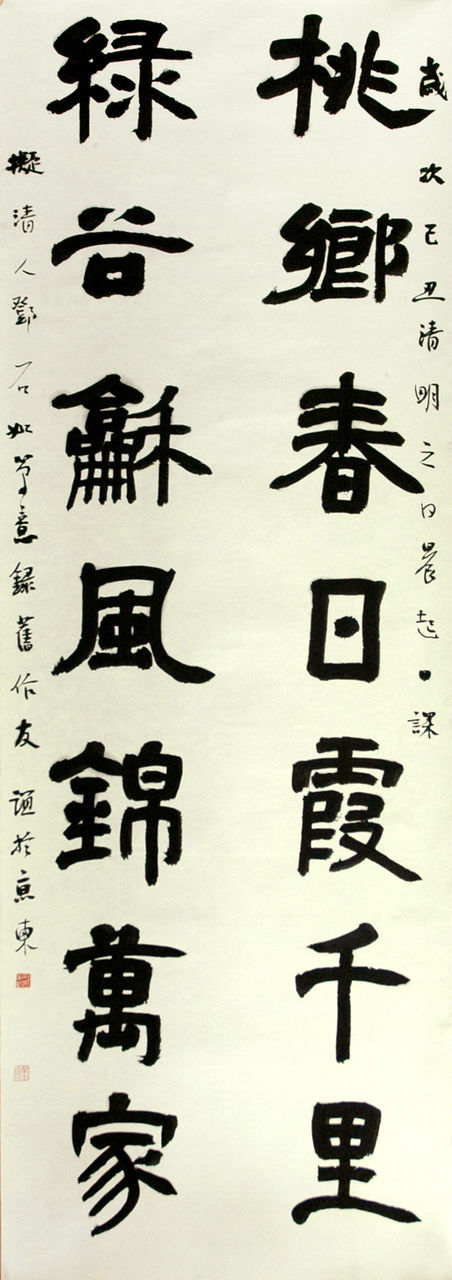 歲次己丑清明之日晨起日課
桃鄉春日霞千里
綠谷龢風錦萬家
擬清人鄧石如筆意錄舊作友謳於京東